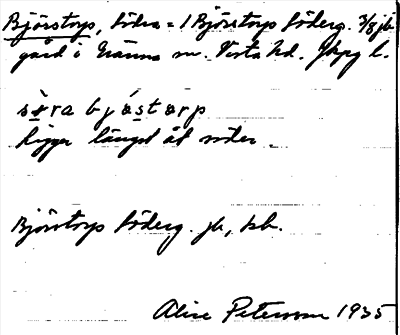 Björstorp, Södra = 1 Björstorp Söderg. 3/8 jb.
gård i Näänna sn. Vista hd. Jkpg l.
sø̀ra bjɵ́star̥p
Ligger längst åt söder.
Björstorp Söderg. jb, kb.
Alice Petersson 1935